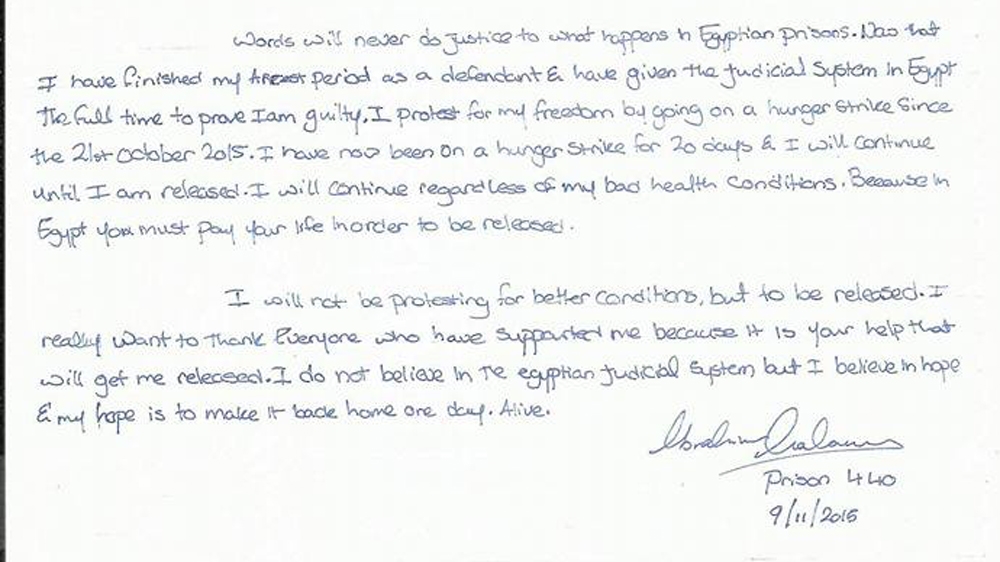 Words will never do justice to what happens in Egyptian prisons. Now that
I have finished my Arrest period as a defendant & have given the Judicial System in Egypt
The full time to prove I am guilty, I protest for my freedom by going on a hunger strike since
the 21st October 2015. I have now been on a hunger strike for 20 days & I will continue
until I am released. I will continue regardless of my bad health conditions. Because in
Egypt you must pay your life in order to be released.
I will not be protesting for better conditions, but to be released. I
really want to thank Everyone who have supported me because it is your help that
will get me released. I do not believe in the egyptian judicial system but I believe in hope
& my hope is to make it back home one day. Alive.
Ibrahim Halawa
Prison 440
9/11/2015